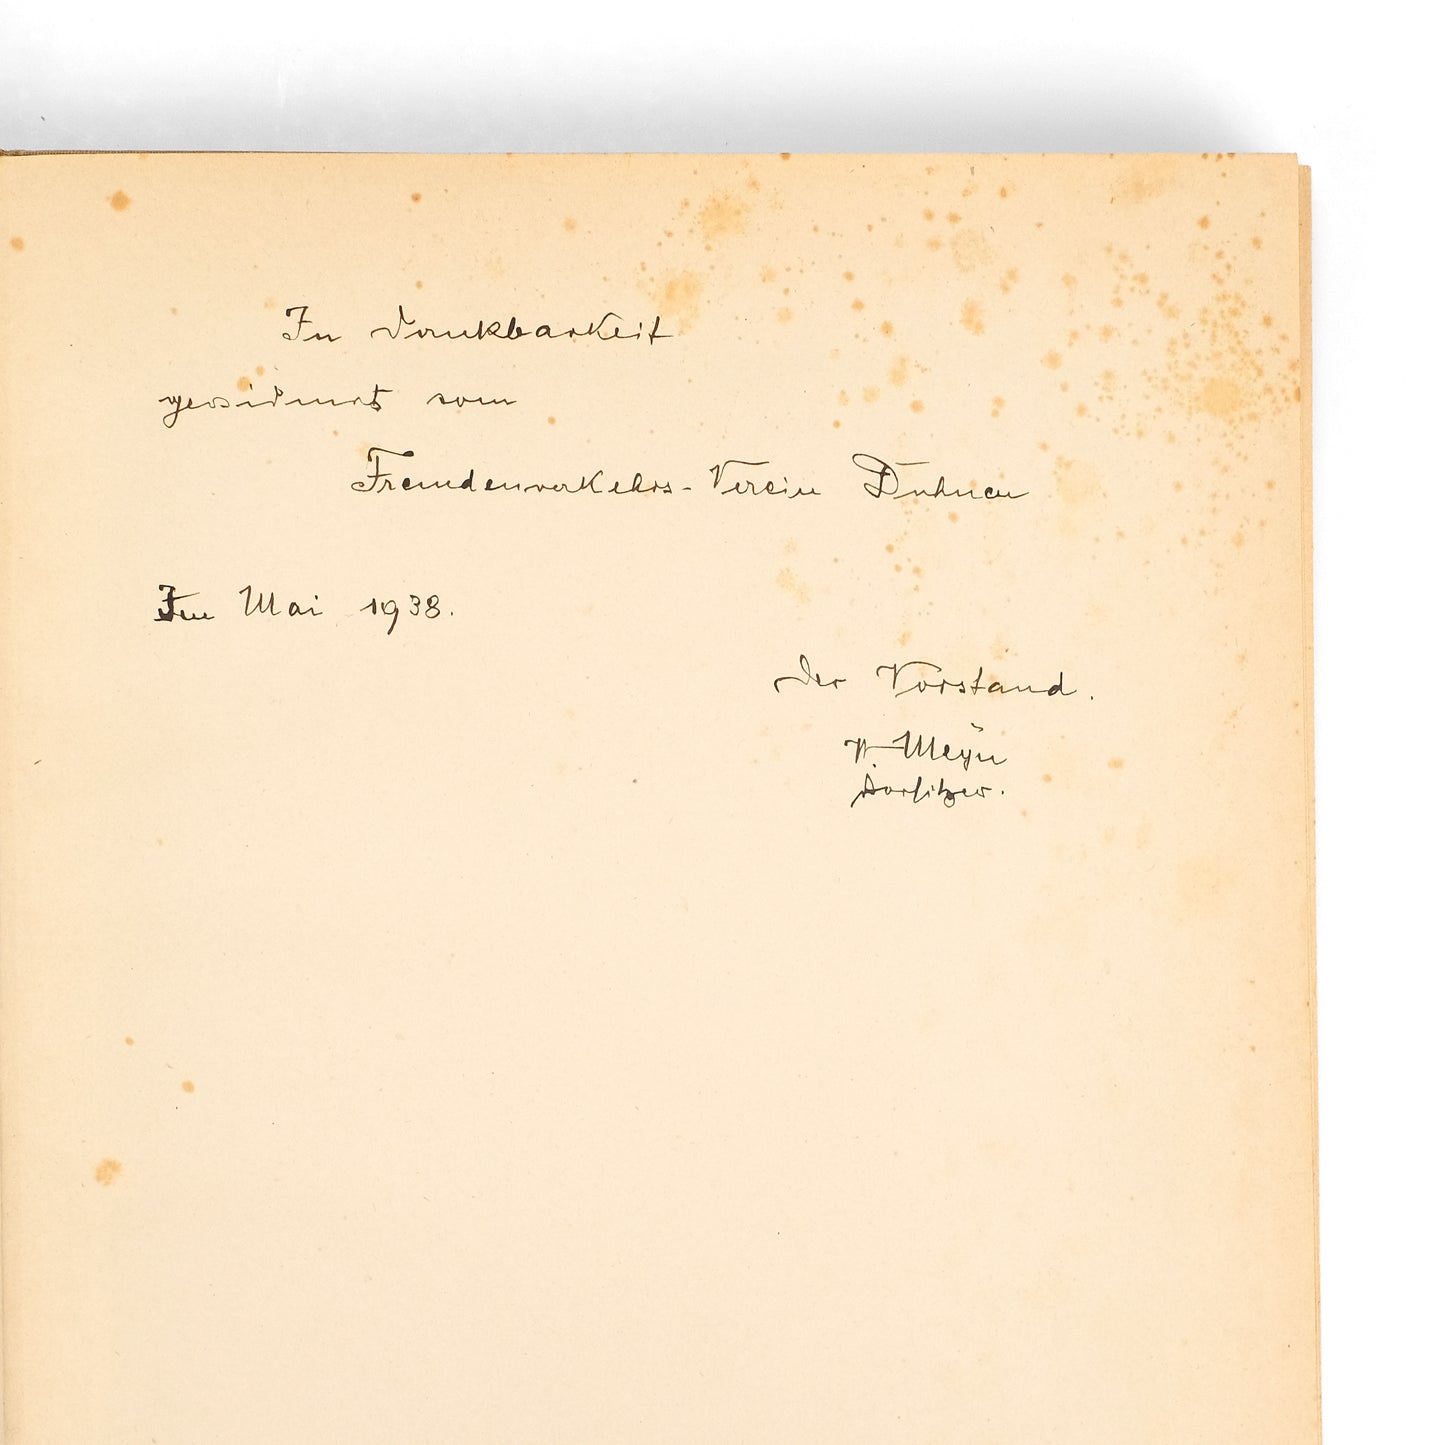 In Dankbarkeit
gewidmet vom
Fremdenverkehrs-Verein Duhnen
Im Mai 1938.
Der Vorstand.
W. Meyn
Vorsitzer.